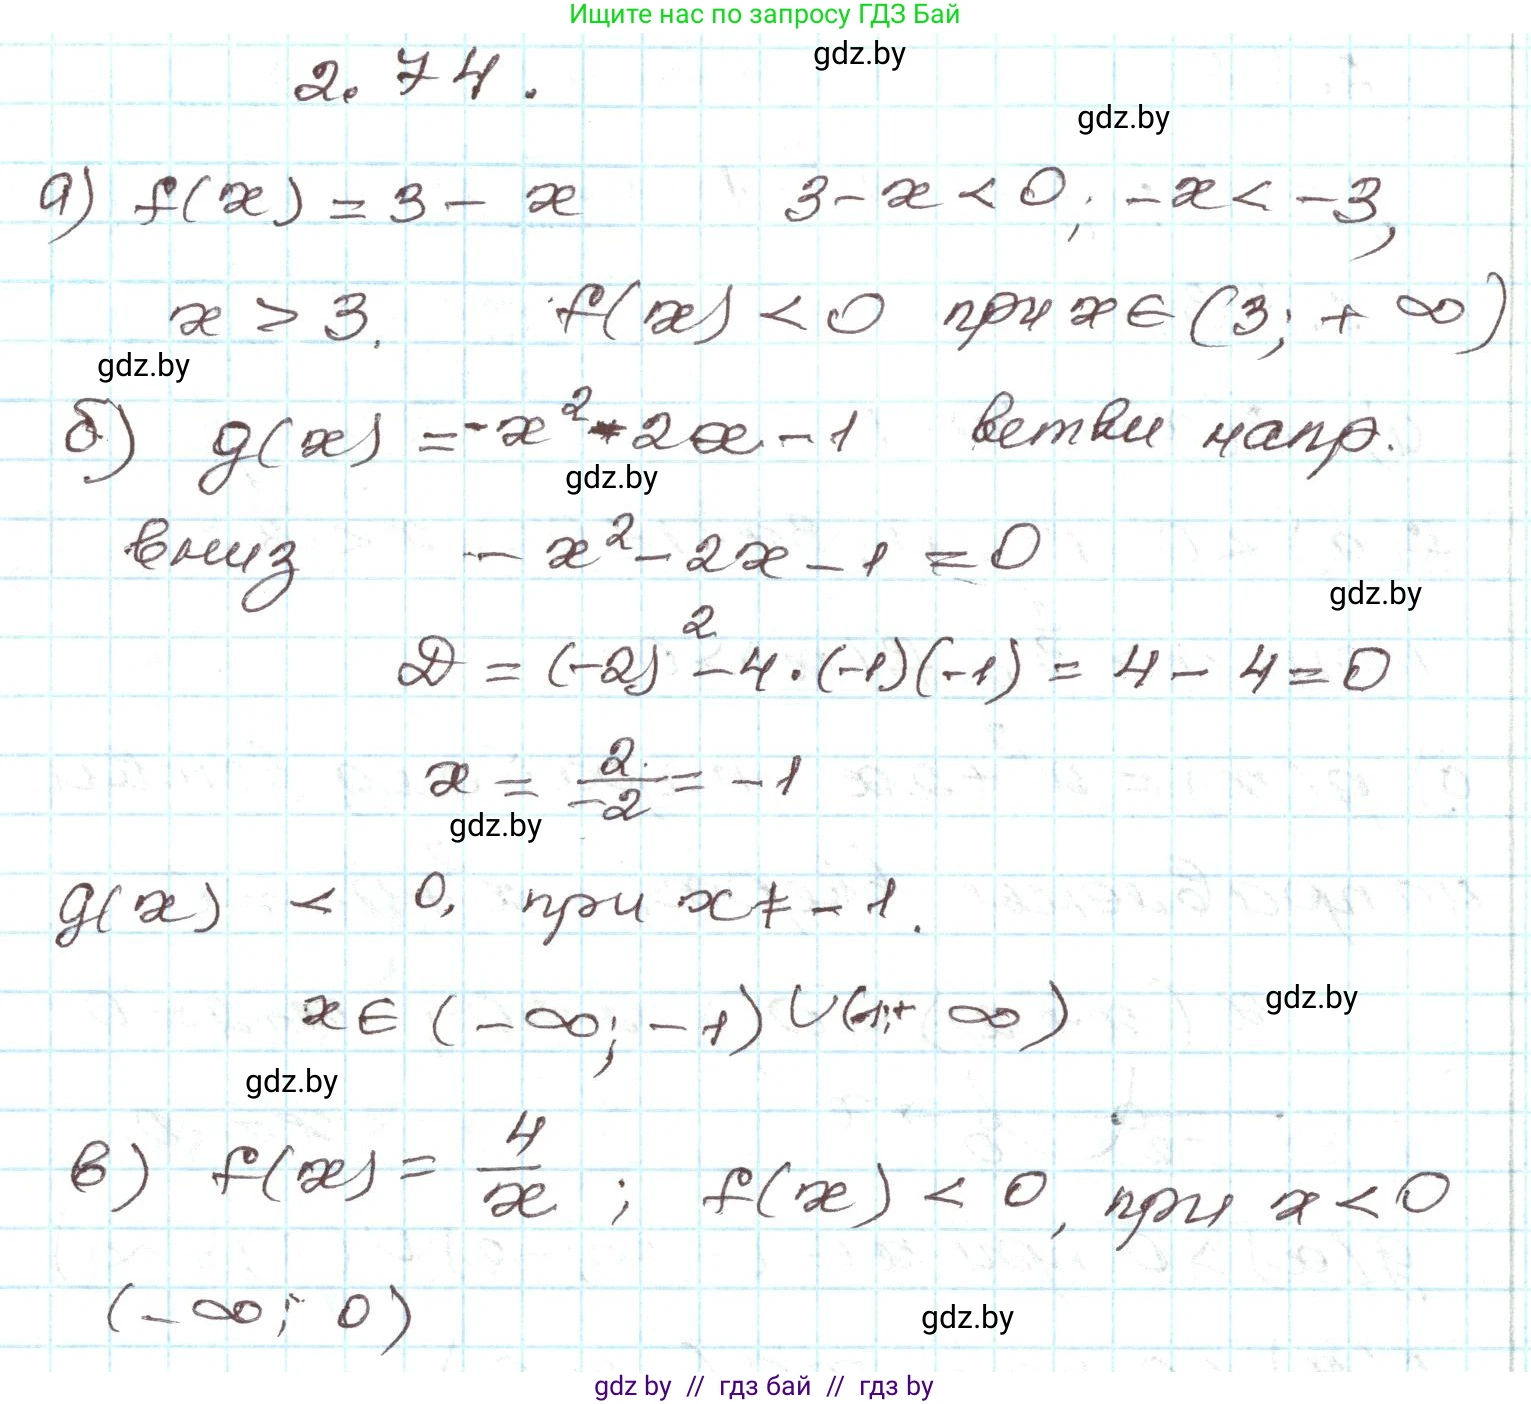 Ищите нас по запросу ГДЗ Бай
2.74.
gdz.by
gdz.by
а) f(x) = 3 - x 3 - x < 0; -x < -3,
x > 3. f(x) < 0 при x ∈ (3; + ∞)
gdz.by
б) g(x) = -x² - 2x - 1 ветви напр.
gdz.by
вниз - x² - 2x - 1 = 0
gdz.by
D = (-2)² - 4 · (-1)(-1) = 4 - 4 = 0
x = 2/-2 = -1
gdz.by
g(x) < 0, при x ≠ -1.
x ∈ (-∞; -1) ∪ (-1; + ∞)
gdz.by
gdz.by
в) f(x) = 4/x ; f(x) < 0, при x < 0
(-∞; 0)
gdz.by
gdz by // гдз бай // гдз by